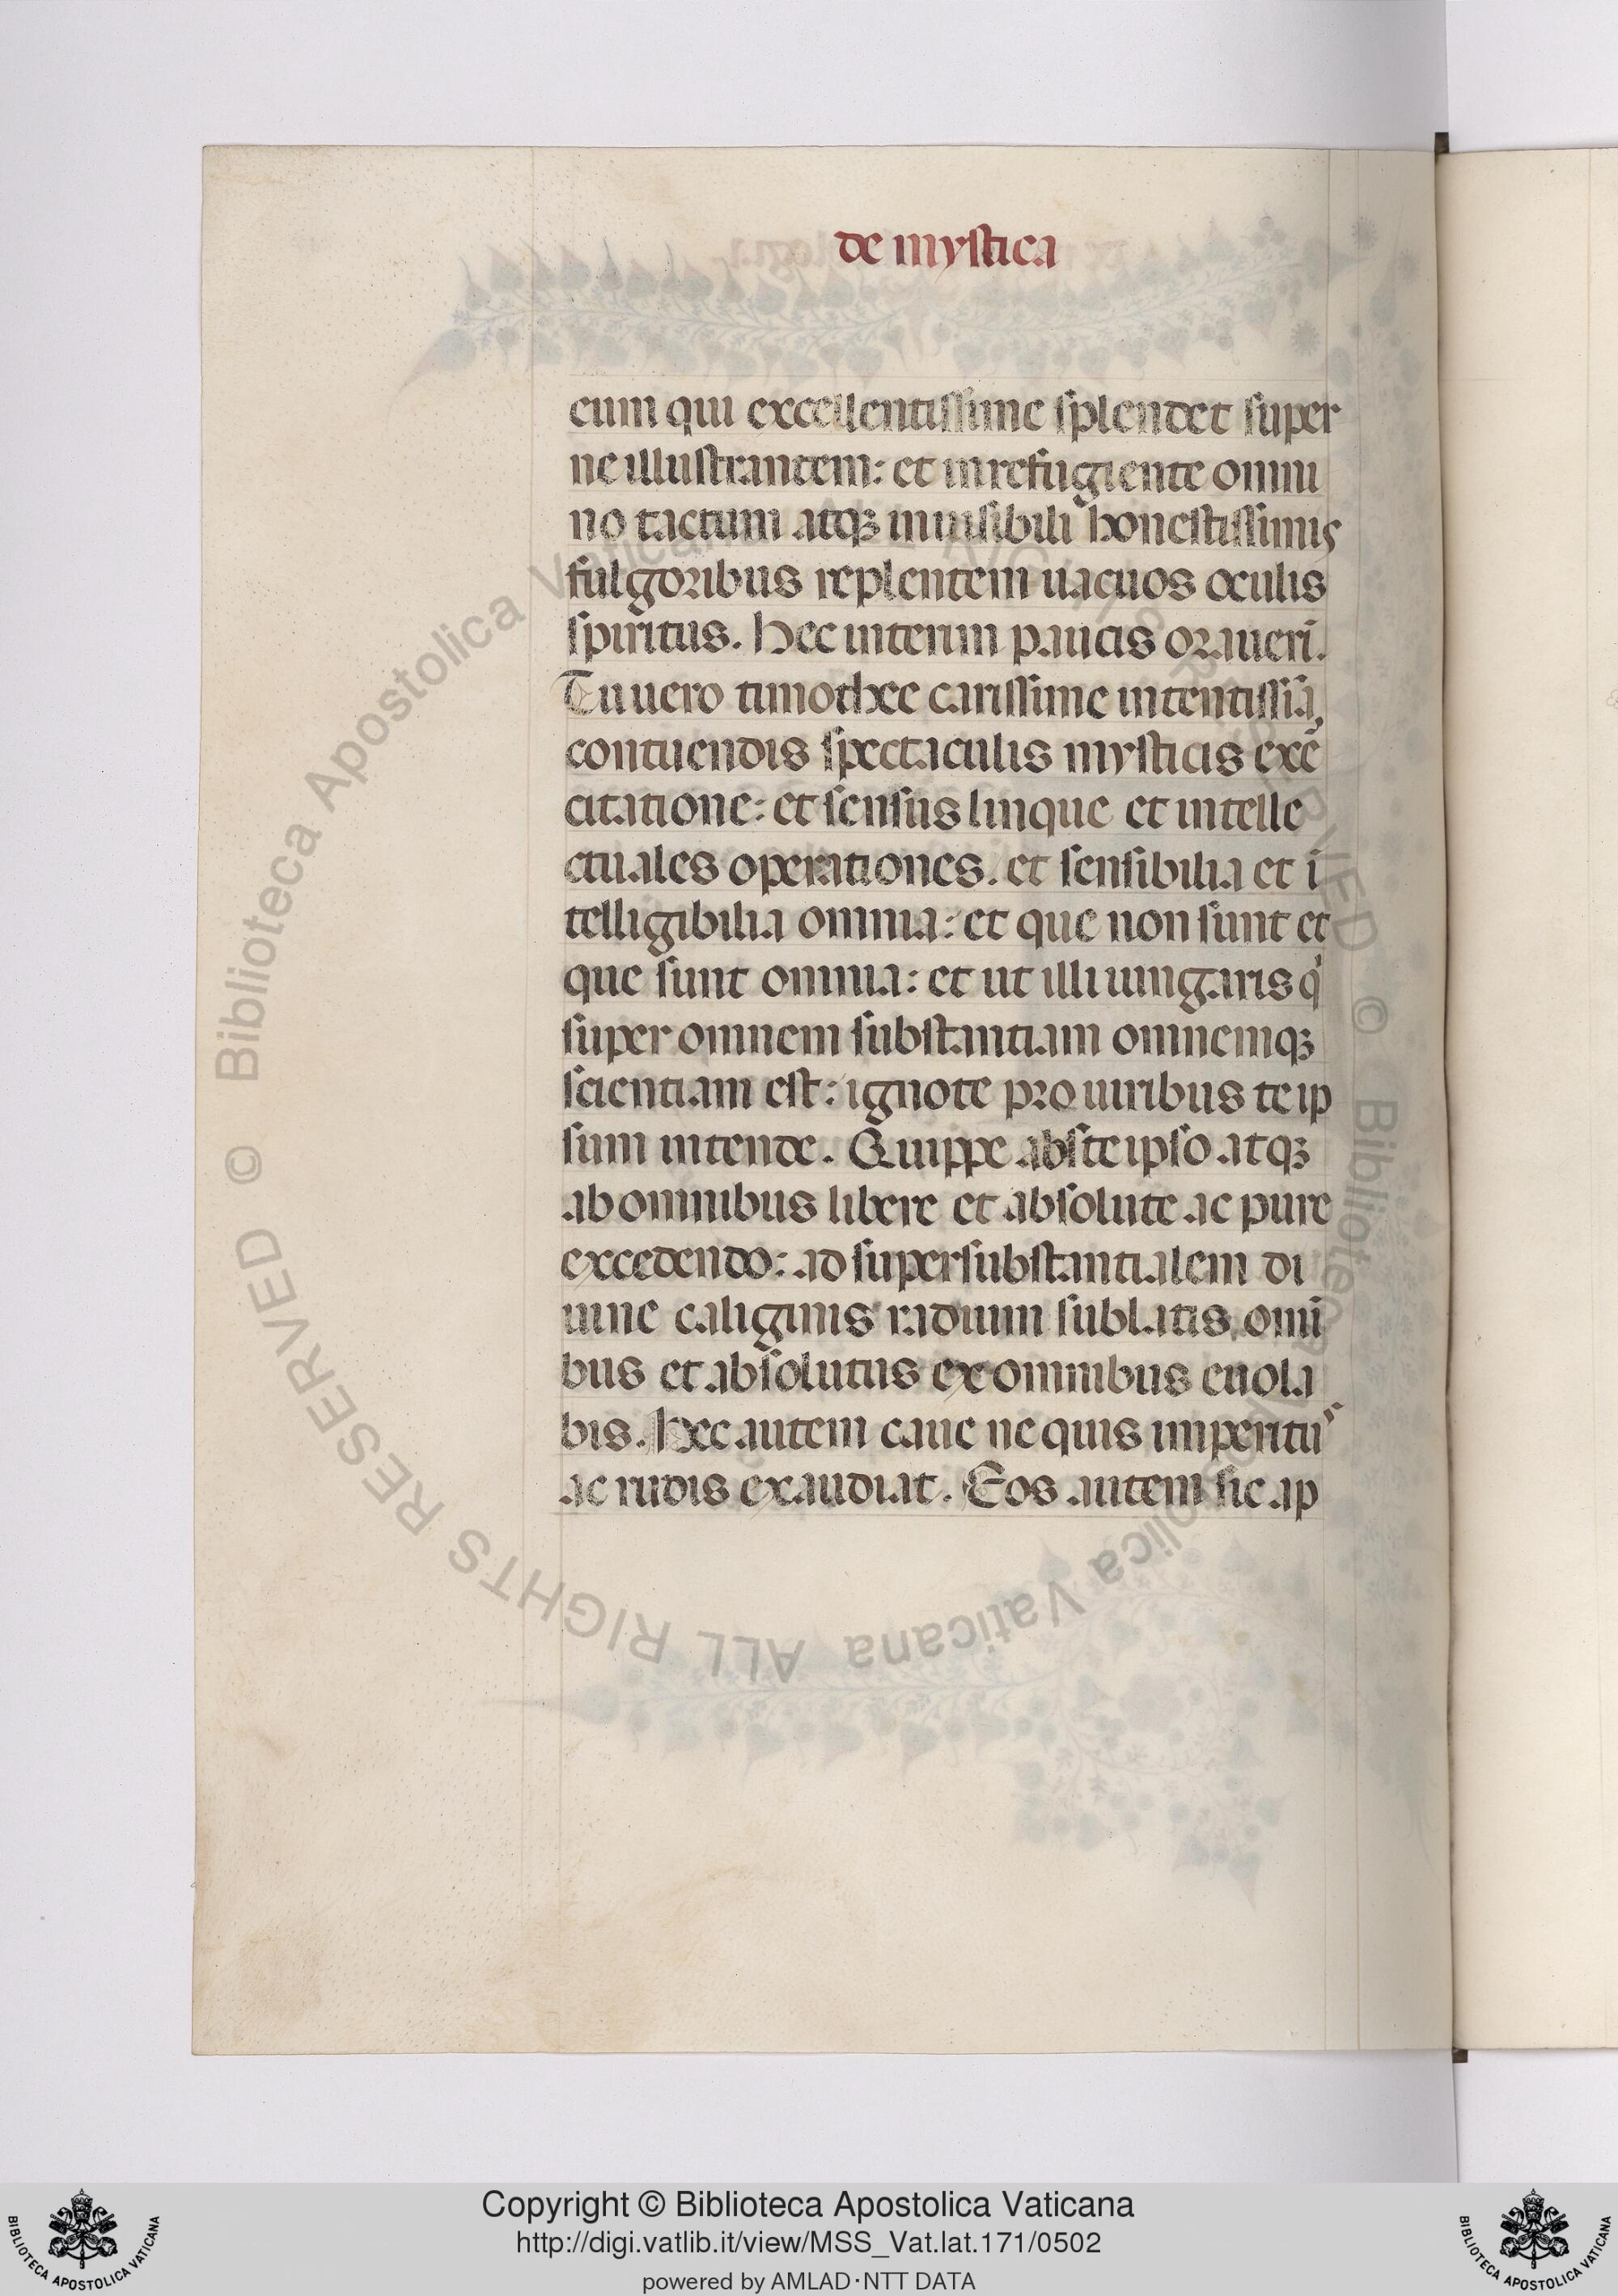 de mystica
eum qui excellentissime splendet super
ne illustrantem: et in refugiente omni
no tactum atqȝ inuisibili honestissimis
fulgoribus replentem uacuos oculis
spiritus. Hec interim paucis oraueri.
Tu uero timothee carissime intentissīa
contuendis spectaculis mysticis exē
citatione: et sensus linque et intelle
ctuales operationes. et sensibilia et ī
telligibilia omnia: et que non sunt et
que sunt omnia: et ut illi iungaris q
super omnem substantiam omnemqȝ
scientiam est: ignote pro uiribus te ip
sum intende. Quippe abste ipso atqȝ
ab omnibus libere et absolute ac pure
excedendo: ad supersubstantialem di
uine caliginis radium sublatis omī
bus et absolutus ex omnibus euola
bis. Hec autem caue ne quis imperitus
ac rudis exaudiat. Eos autem sic ap
© Biblioteca Apostolica Vaticana ALL RIGHTS RESERVED © Biblioteca Apostolica Vaticana ALL RIGHTS RESERVED
Copyright © Biblioteca Apostolica Vaticana
http://digi.vatlib.it/view/MSS_Vat.lat.171/0502
powered by AMLAD·NTT DATA
BIBLIOTECA APOSTOLICA VATICANA
BIBLIOTECA APOSTOLICA VATICANA